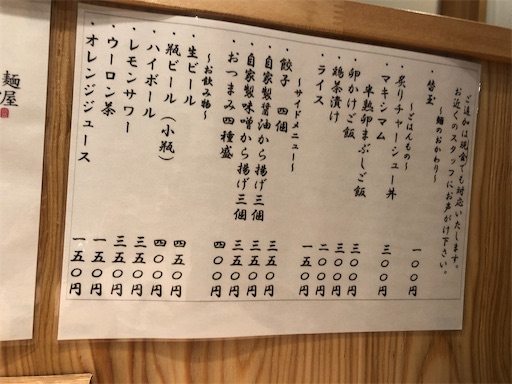 ご追加は現金でも対応いたします。
お近くのスタッフにお声がけ下さい。
〜麺のおかわり〜
替玉 一〇〇円
〜ごはんもの〜
炙りチャーシュー丼 三〇〇円
マキシマム
半熟卵まぶしご飯 三〇〇円
卵かけご飯 三〇〇円
鶏茶漬け 二〇〇円
ライス 一五〇円
〜サイドメニュー〜
餃子 四個 三五〇円
自家製醤油から揚げ三個 三五〇円
自家製味噌から揚げ三個 三五〇円
おつまみ四種盛 四〇〇円
〜お飲み物〜
生ビール 四五〇円
瓶ビール（小瓶） 四〇〇円
ハイボール 三五〇円
レモンサワー 三五〇円
ウーロン茶 一五〇円
オレンジジュース 一五〇円
麺屋